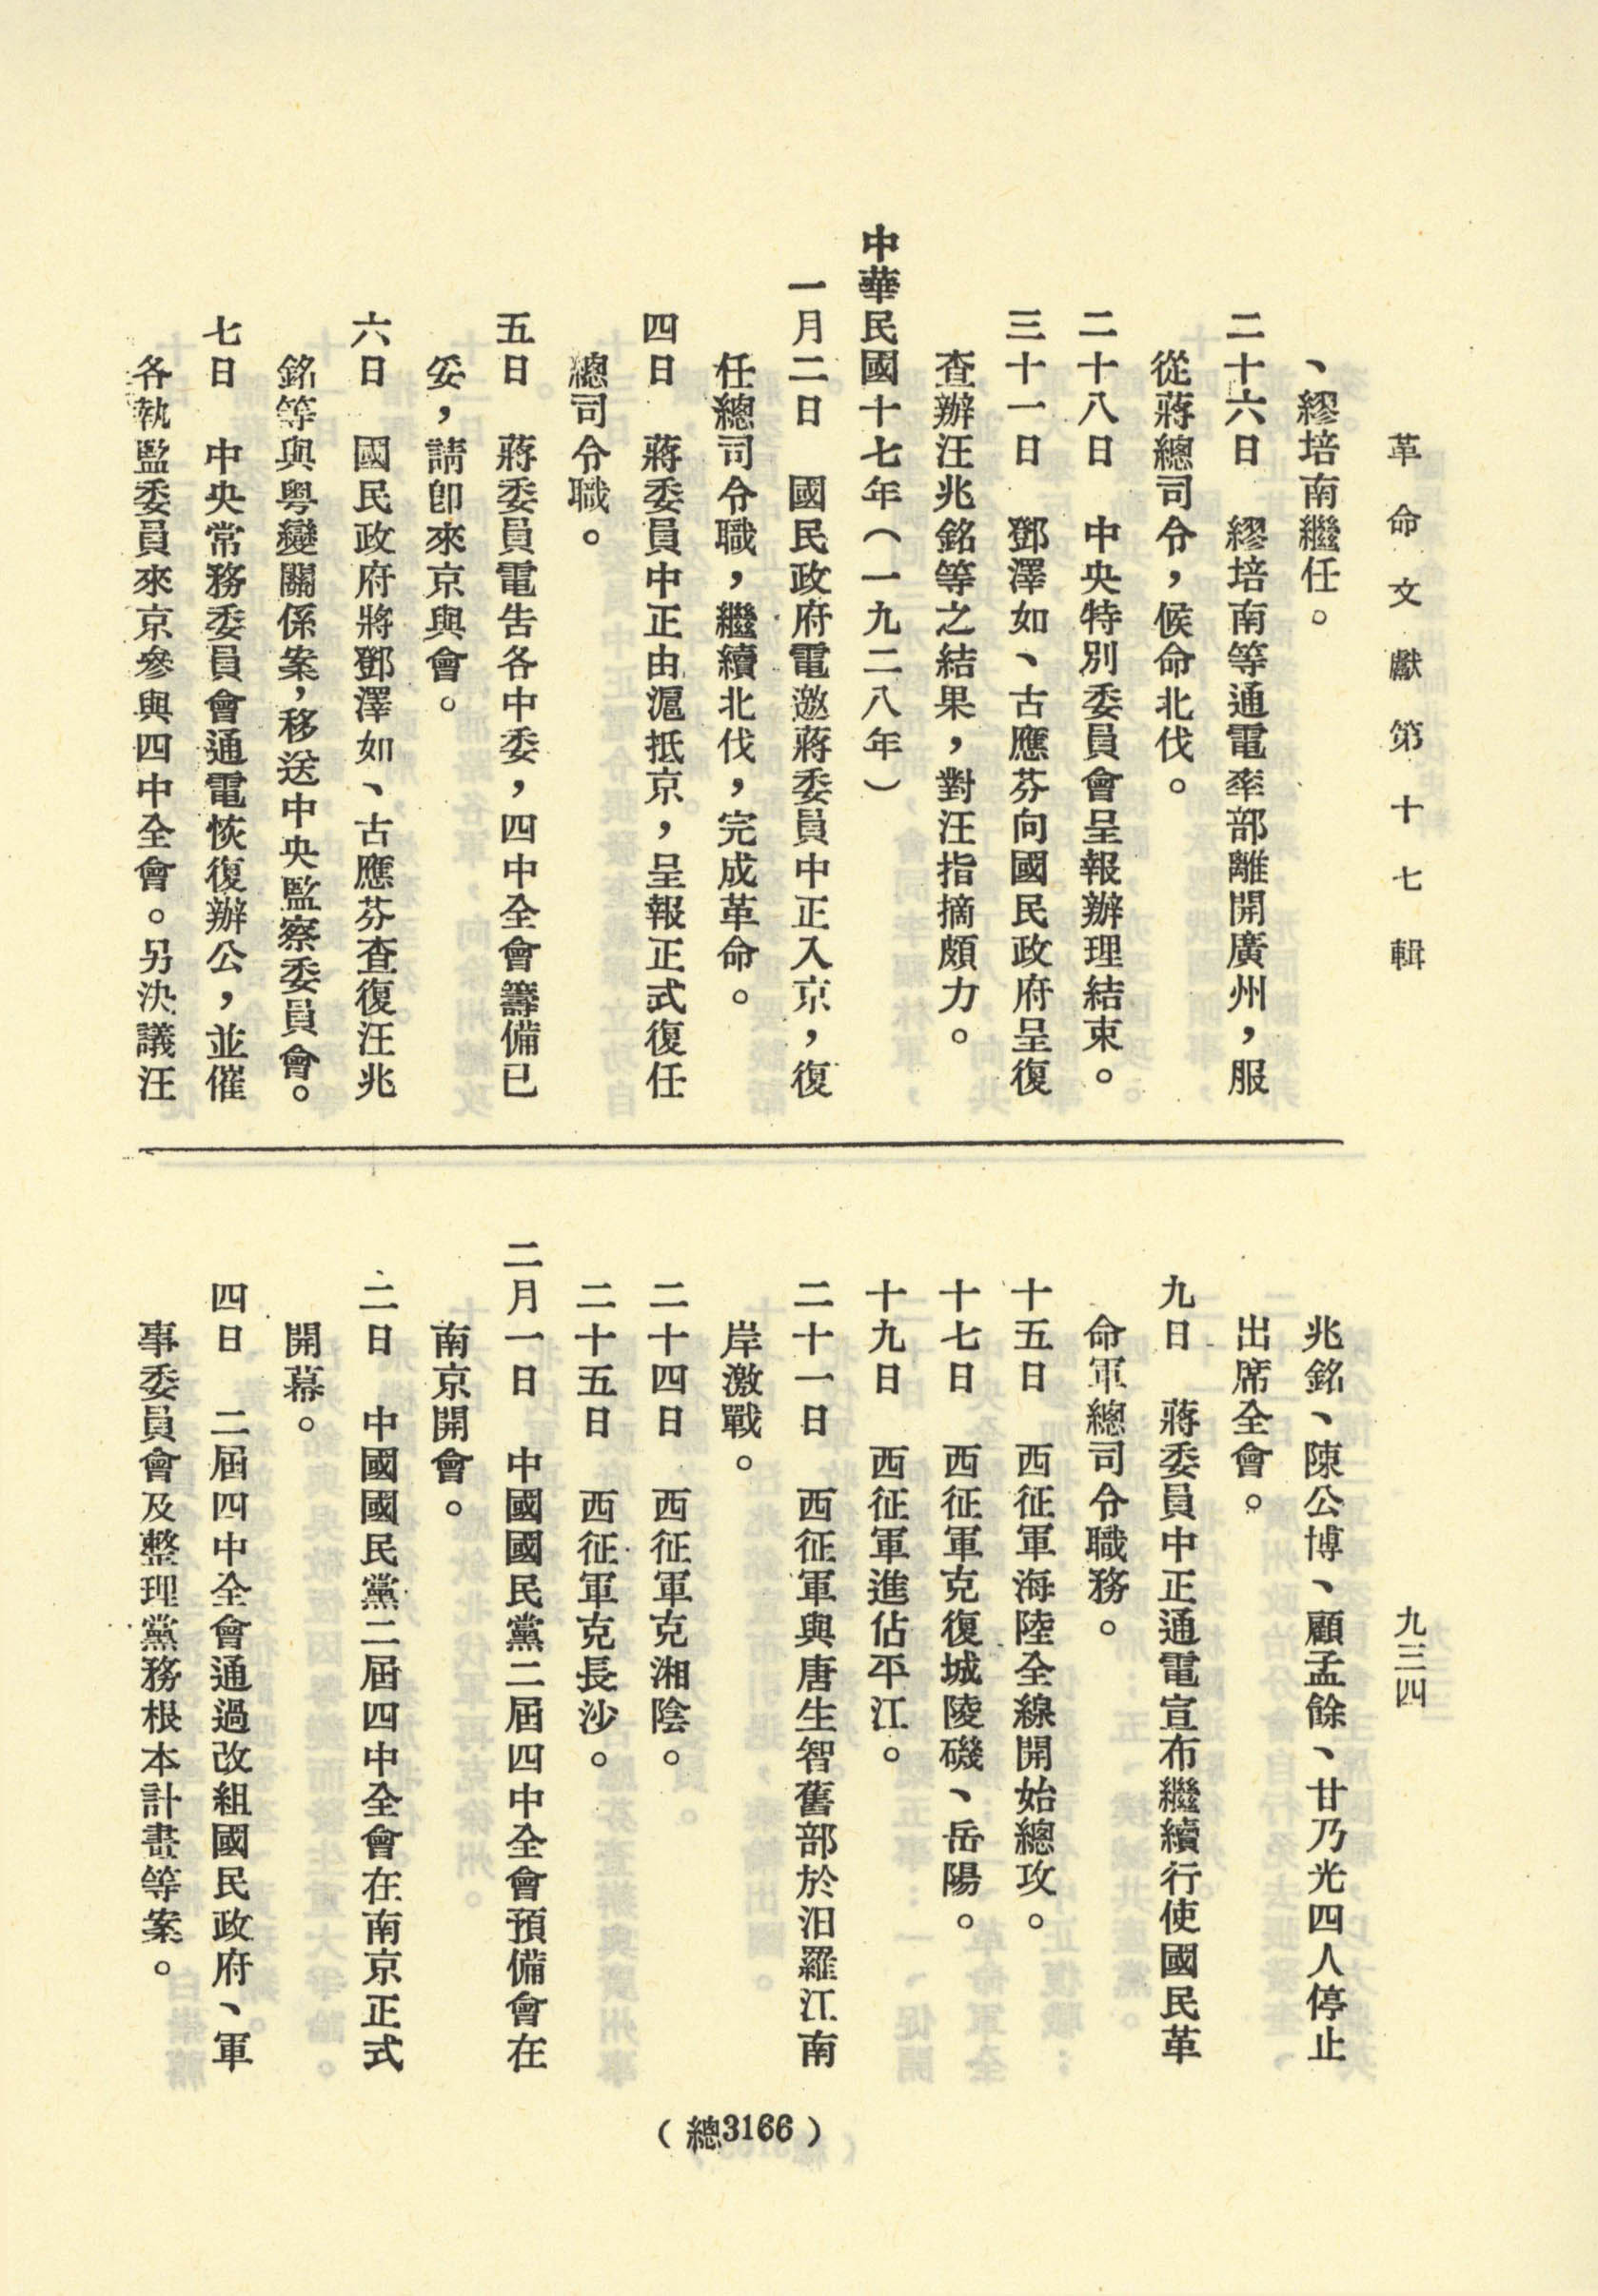 革命文獻第十七輯
九三四
、繆培南繼任。
二十六日　繆培南等通電率部離開廣州，服
從蔣總司令，候命北伐。
二十八日　中央特別委員會呈報辦理結束。
三十一日　鄧澤如、古應芬向國民政府呈復
查辦汪兆銘等之結果，對汪指摘頗力。
中華民國十七年（一九二八年）
一月二日　國民政府電邀蔣委員中正入京，復
任總司令職，繼續北伐，完成革命。
四日　蔣委員中正由滬抵京，呈報正式復任
總司令職。
五日　蔣委員電告各中委，四中全會籌備已
妥，請卽來京與會。
六日　國民政府將鄧澤如、古應芬查復汪兆
銘等與粵變關係案，移送中央監察委員會。
七日　中央常務委員會通電恢復辦公，並催
各執監委員來京參與四中全會。另決議汪
兆銘、陳公博、顧孟餘、甘乃光四人停止
出席全會。
九日　蔣委員中正通電宣布繼續行使國民革
命軍總司令職務。
十五日　西征軍海陸全線開始總攻。
十七日　西征軍克復城陵磯、岳陽。
十九日　西征軍進佔平江。
二十一日　西征軍與唐生智舊部於汨羅江南
岸激戰。
二十四日　西征軍克湘陰。
二十五日　西征軍克長沙。
二月一日　中國國民黨二屆四中全會預備會在
南京開會。
二日　中國國民黨二屆四中全會在南京正式
開幕。
四日　二屆四中全會通過改組國民政府、軍
事委員會及整理黨務根本計畫等案。
（總3166）